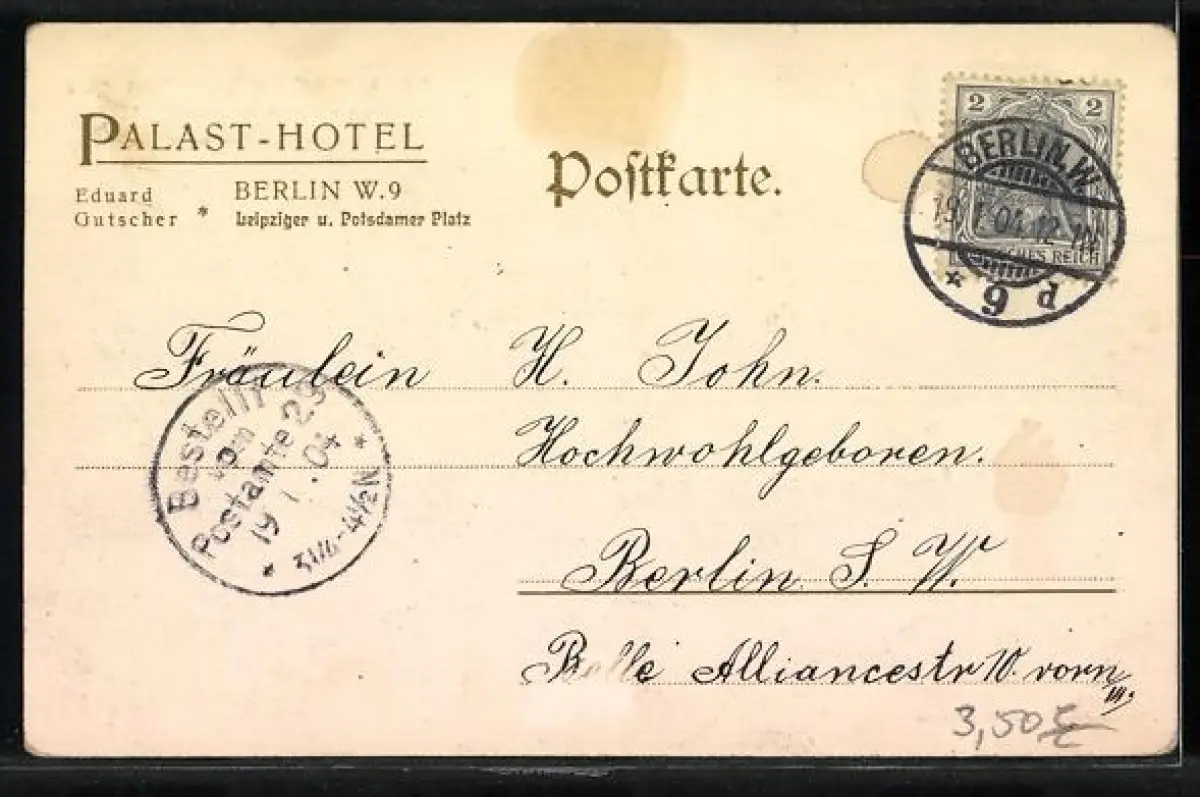 PALAST-HOTEL
Eduard Gutscher * BERLIN W.9
Leipziger u. Potsdamer Platz
Postkarte.
2 2
DEUTSCHES REICH
BERLIN. W.
19 1 04 12-1N
* 9 d
Fräulein H. John.
Hochwohlgeboren.
Berlin S. W.
Belle Alliancestr 10. vorn
III.
Bestellt
vom
Postamte 29
19 1. 04
3¼-4½N
3,50